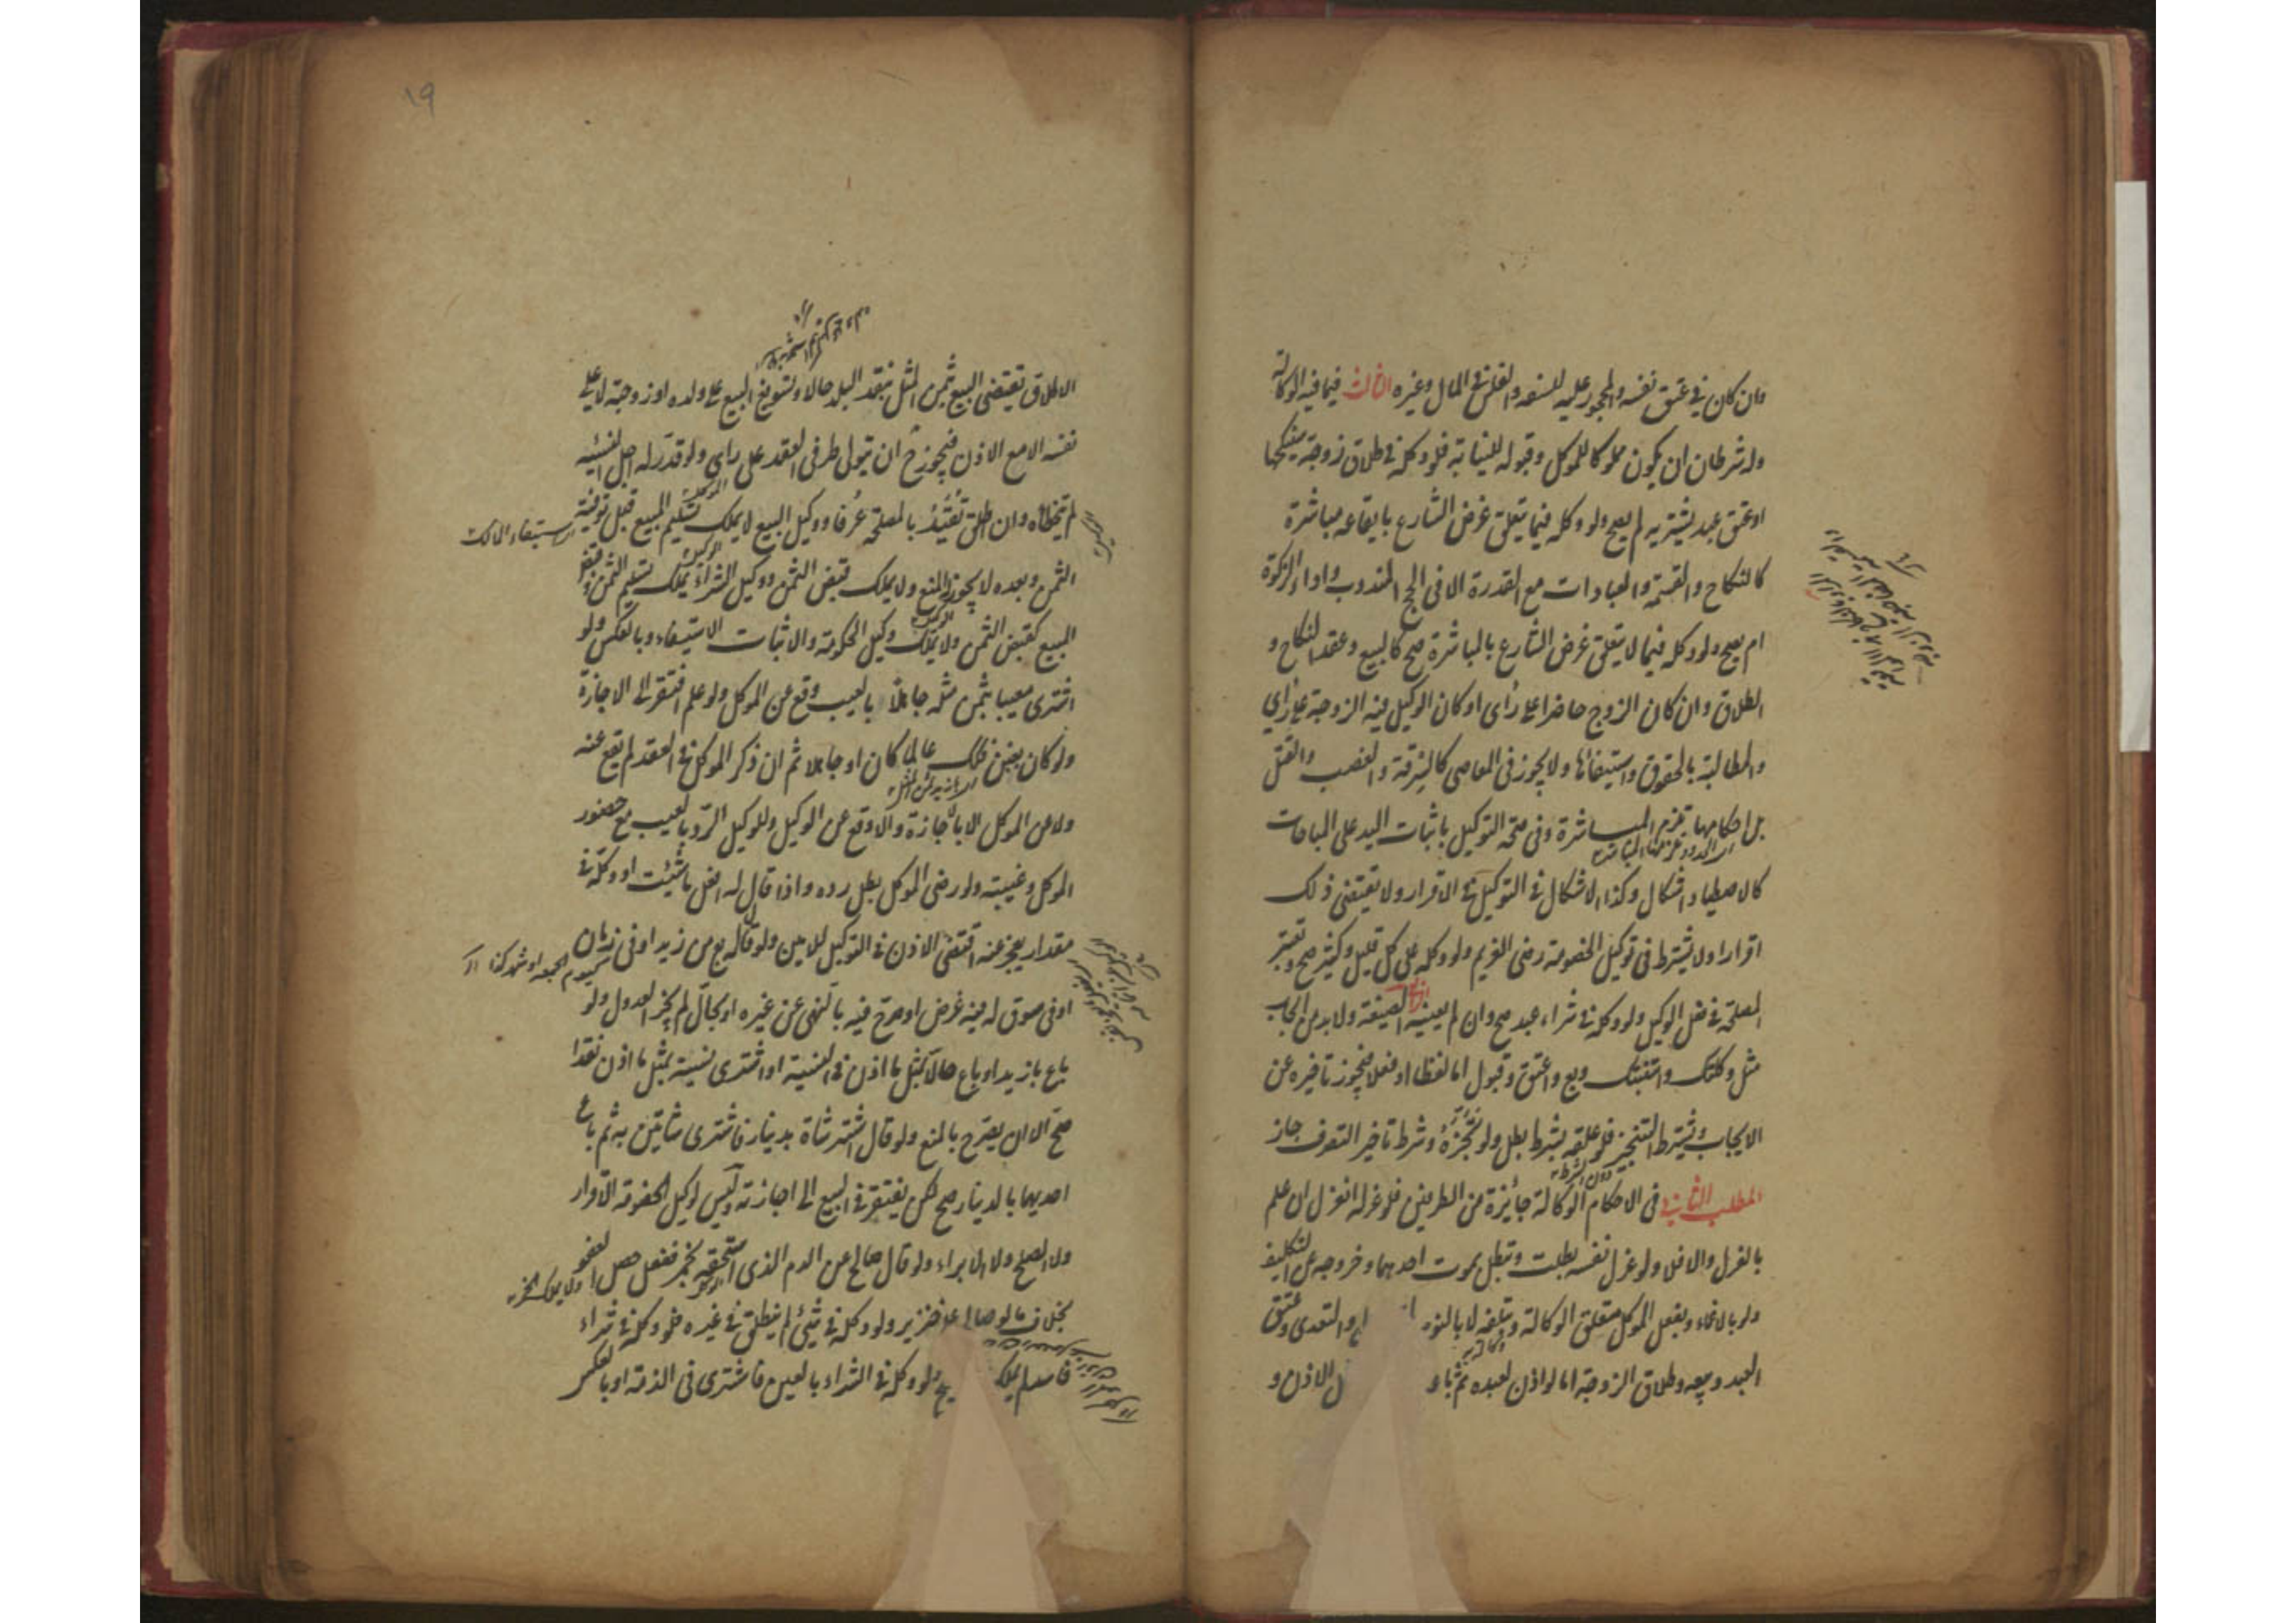 وان كان في عتق نفسه والمحجور عليه للسفه والفلس في المال وغيره الثالث فيما فيه الوكالة
وله شرطان ان يكون مملوكا للموكل وقبوله للنيابة فلو وكله في طلاق زوجة سينكحها
او عتق عبد يشتريه لم يصح ولو وكله فيما يتعلق غرض الشارع بايقاعه مباشرة
كالنكاح والقسمة والعبادات مع القدرة الا في الحج المندوب واداء الزكوة
لم يصح ولو وكله فيما لا يتعلق غرض الشارع بالمباشرة صح كالبيع وعقد النكاح و
الطلاق وان كان الزوج حاضرا على رأى او كان الوكيل فيه الزوجة على رأي
والمطالبة بالحقوق واستيفائها ولا يجوز في المعاصي كالسرقة والغصب والقتل
بل احكامها تلزم المباشرة وفي صحة التوكيل باثبات اليد على المباحات
كالاصطياد اشكال وكذا الاشكال في التوكيل في الاقرار ولا يقتضي ذلك
اقرارا ولا يشترط في توكيل الخصومة رضى الغريم ولو وكله على كل قليل وكثير صح وتعتبر
المصلحة في فعل الوكيل ولو وكله في شراء عبد صح وان لم يعينه الرابع الصيغة ولا بد من ايجاب
مثل وكلتك واستنبتك وبع واعتق وقبول اما لفظا او فعلا فيجوز تاخيره عن
الايجاب ويشترط التنجيز فلو علقه بشرط بطل ولو نجزه وشرط تاخير التصرف جاز
المطلب الثاني في الاحكام الوكالة جائزة من الطرفين فلو عزله انعزل ان علم
بالعزل والا فلا ولو عزل نفسه بطلت وتبطل بموت احدهما وخروجه عن التكليف
ولو بالاغماء وبفعل الموكل متعلق الوكالة وبتلفه لا بالنو والتعدى وعتق
العبد وبيعه وطلاق الزوجة اما لو اذن لعبده ثم باع الاذن و
١٩
الاطلاق تقتضى البيع بثمن المثل بنقد البلد حالا وتسويغ البيع على ولده او زوجته لا على
نفسه الا مع الاذن فيجوز ح ان يتولى طرفي العقد على راي ولو قدر له اجل النسيئة
لم يتخطاه وان اطلق تقيد بالمصلحة عرفا ووكيل البيع لا يملك تسليم المبيع قبل توفية
الثمن وبعده لا يجوز المنع ولا يملك قبض الثمن ووكيل الشراء يملك تسليم الثمن وقبض
المبيع كقبض الثمن ولا يملك وكيل الحكومة والاثبات الاستيفاء وبالعكس ولو
اشترى معيبا بثمن مثله جاهلا بالعيب وقع عن الموكل ولو علم افتقر الى الاجازة
ولو كان بغبن فكذلك عالما كان او جاهلا ثم ان ذكر الموكل في العقد لم يقع عنه
ولا عن الموكل الا بالاجازة والا وقع عن الوكيل وللوكيل الرد بالعيب مع حضور
الموكل وغيبته ولو رضى الموكل بطل رده واذا قال له افعل ما شئت او وكله في
مقدار يعجز عنه اقتضى الاذن في التوكيل للامين ولو قال له بع من زيد او في زمان
كيوم الجمعة او شهر كذا
او في سوق له فيه غرض او صرح فيه بالنهى عن غيره او بحال لم يجز العدول ولو
باع بازيد او باع حالا بمثل ما اذن في النسية او اشترى نسية بمثل ما اذن نقدا
صح الا ان يصرح بالمنع ولو قال اشتر شاة بدينار فاشترى شاتين به ثم باع
احديهما بالدينار صح لكن يفتقر في البيع الى اجازته وليس لوكيل الخصومة الاقرار
ولا الصلح ولا الابراء ولو قال صالح عن الدم الذي استحقه بخمر ففعل حصل العفو
بخلاف ما لو صالح على خنزير ولو وكله في شئ لم ينطلق في غيره فلو وكله في شراء
فاسد لم يملك ولو وكله في الشراء بالعين فاشترى في الذمة او بالعكس